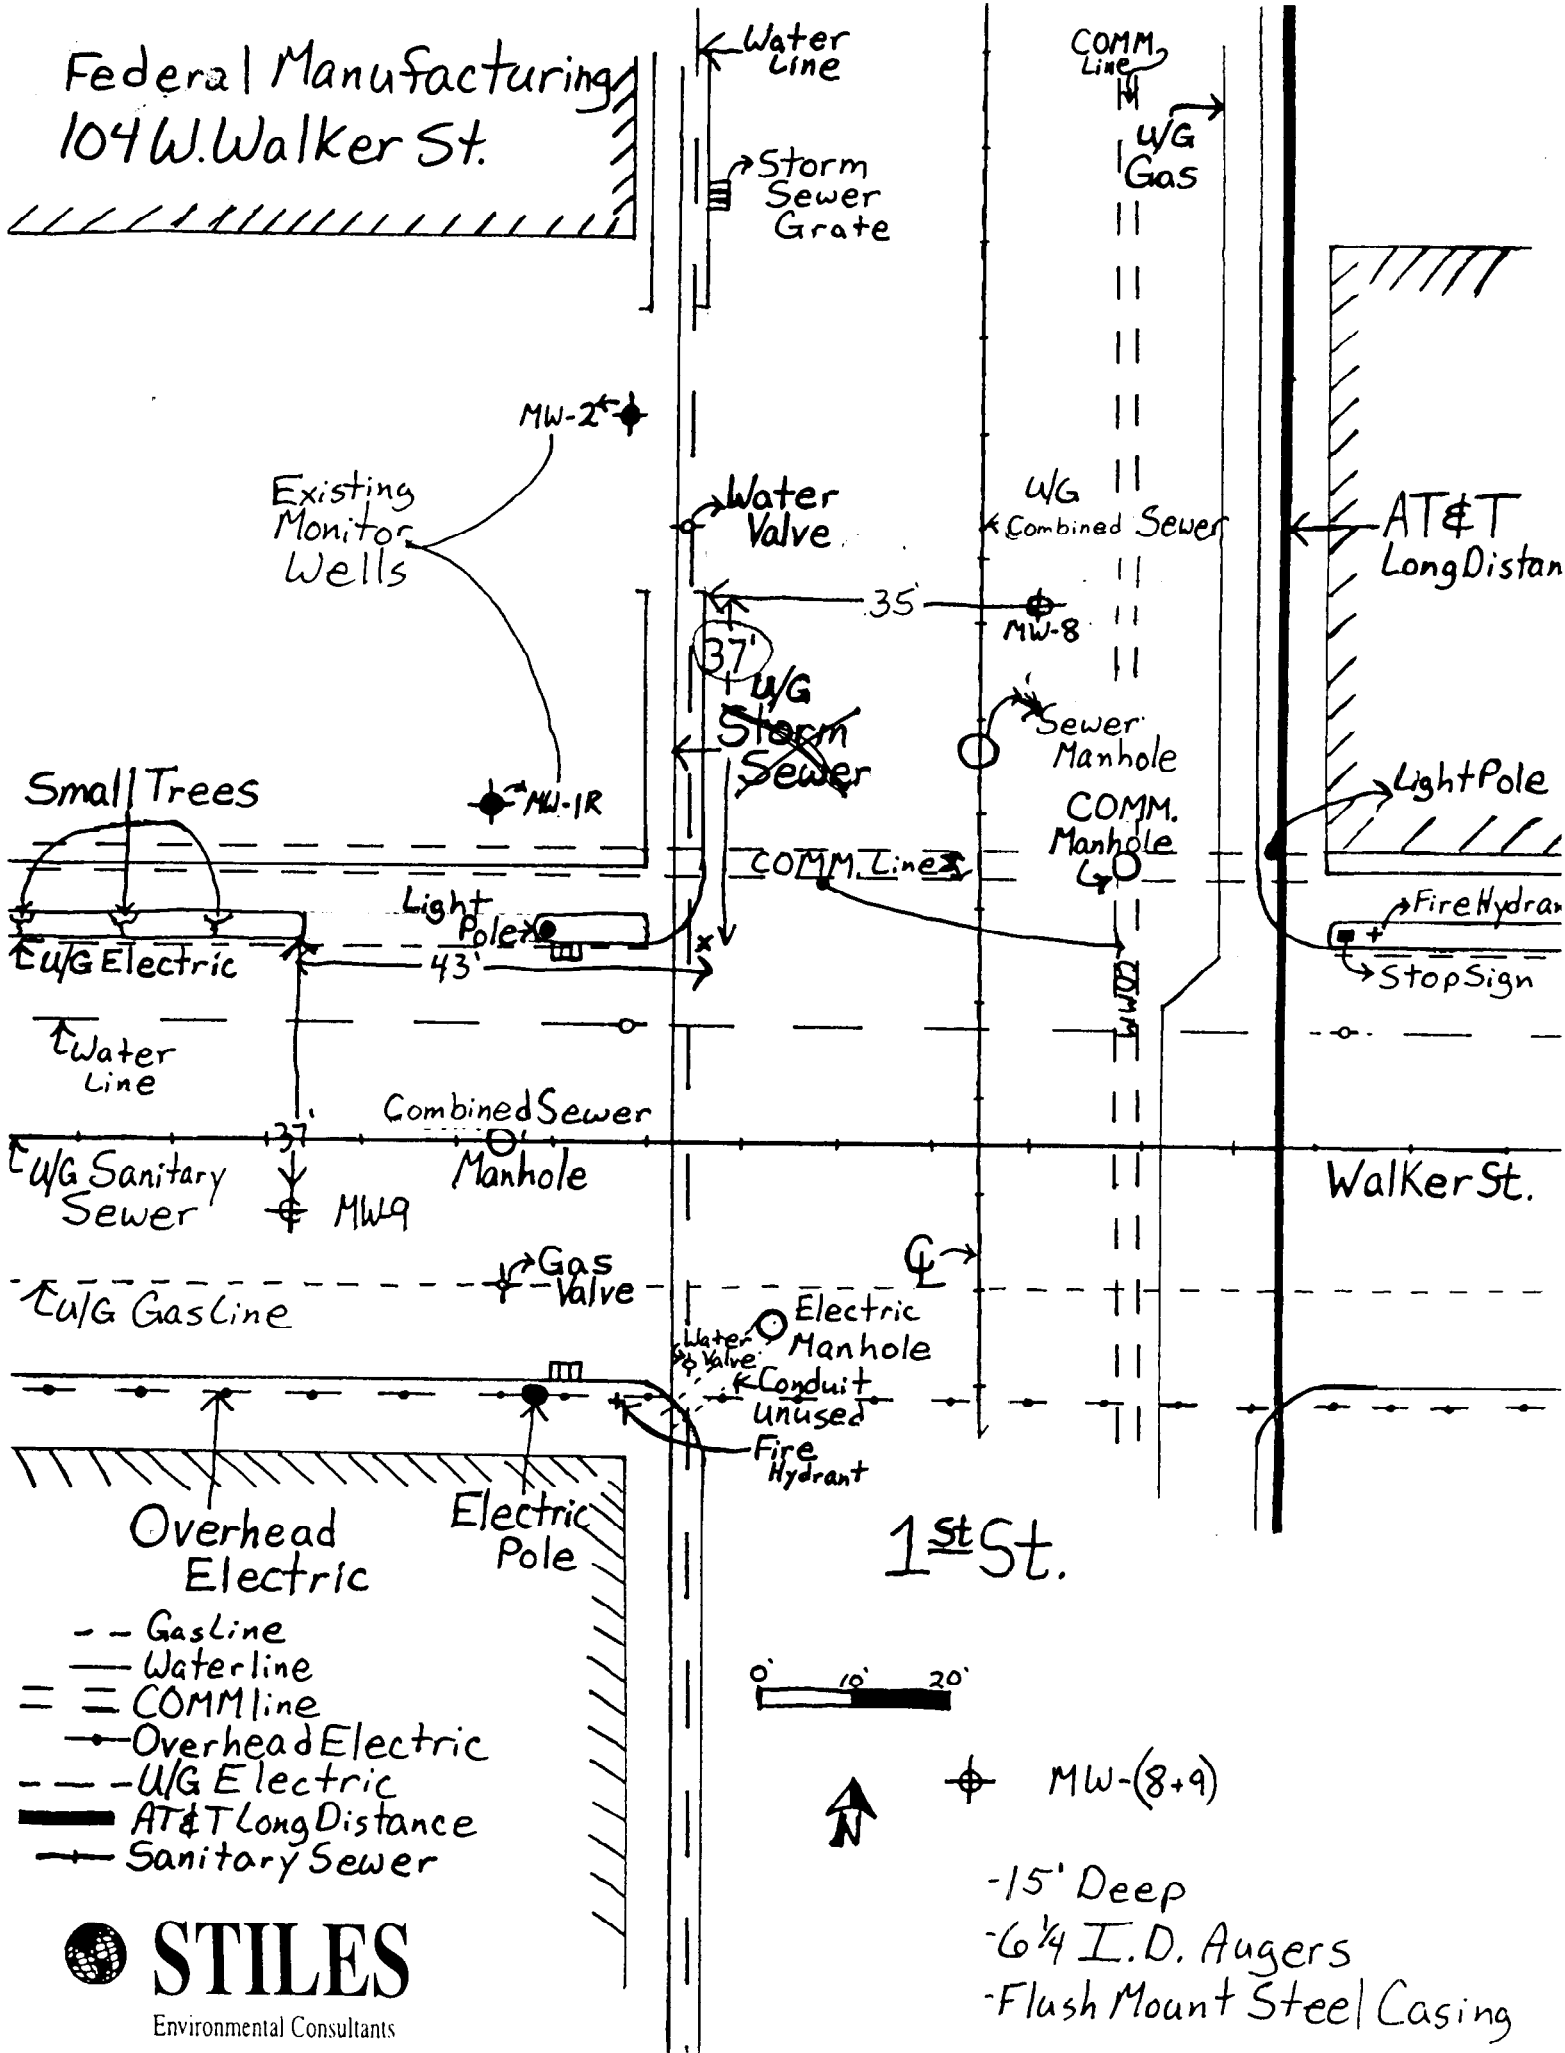 Federal Manufacturing
104 W. Walker St.
Water
Line
COMM.
Line
U/G
Gas
Storm
Sewer
Grate
MW-2
Existing
Monitor
Wells
Water
Valve
U/G
Combined Sewer
AT&T
Long Distan
35'
MW-8
37'
U/G
Storm
Sewer
Sewer
Manhole
Small Trees
MW-1R
COMM.
Manhole
Light Pole
COMM. Line
Light
Pole
Fire Hydran
U/G Electric
43'
x
Stop Sign
COMM
Water
Line
Combined Sewer
37'
Manhole
U/G Sanitary
Sewer
MW-9
Walker St.
Gas
Valve
CL
U/G Gas Line
Electric
Manhole
Water
Valve
Conduit
unused
Fire
Hydrant
Overhead
Electric
Electric
Pole
1st St.
Gas Line
Water line
COMM line
Overhead Electric
U/G Electric
AT&T Long Distance
Sanitary Sewer
0' 10' 20'
N
MW-(8+9)
-15' Deep
-6 1/4 I.D. Augers
-Flush Mount Steel Casing
STILES
Environmental Consultants